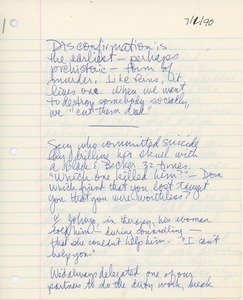 7/1/90
Disconfirmation is
the earliest — perhaps
prehistoric — form of
murder. Like Reno, it
lives on. When we want
to destroy somebody socially,
we "cut them dead."
Guy who committed suicide
by drilling his skull with
a Black & Becker 32 times.
"Which one killed him?" — Don
Which friend that you lost taught
you that you were worthless?
Johns, in therapy, her woman
told him — during counseling —
that she couldn't help him. "I can't
help you"
We always delegated one of our
partners to do the dirty work, back